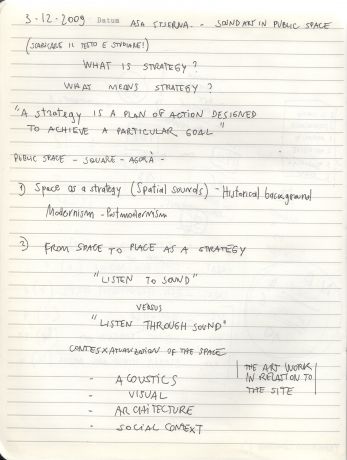 3-12-2009 Datum ASA STJERNA - SOUND ART IN PUBLIC SPACE
(SCARICARE IL TESTO E STUDIARE!)
WHAT IS STRATEGY?
WHAT MEANS STRATEGY?
"A strategy IS A PLAN OF ACTION DESIGNED
TO ACHIEVE A PARTICULAR GOAL"
PUBLIC SPACE - SQUARE - AGORÀ -
1) Space as a strategy (Spatial sounds) - Historical background
Modernism - Postmodernism
2) FROM SPACE TO PLACE AS A STRATEGY
"LISTEN TO SOUND"
VERSUS
"LISTEN THROUGH SOUND"
CONTEXTUALIZATION OF THE SPACE
- ACOUSTICS
- VISUAL
- ARCHITECTURE
- SOCIAL CONTEXT
THE ART WORK
IN RELATION TO
THE SITE